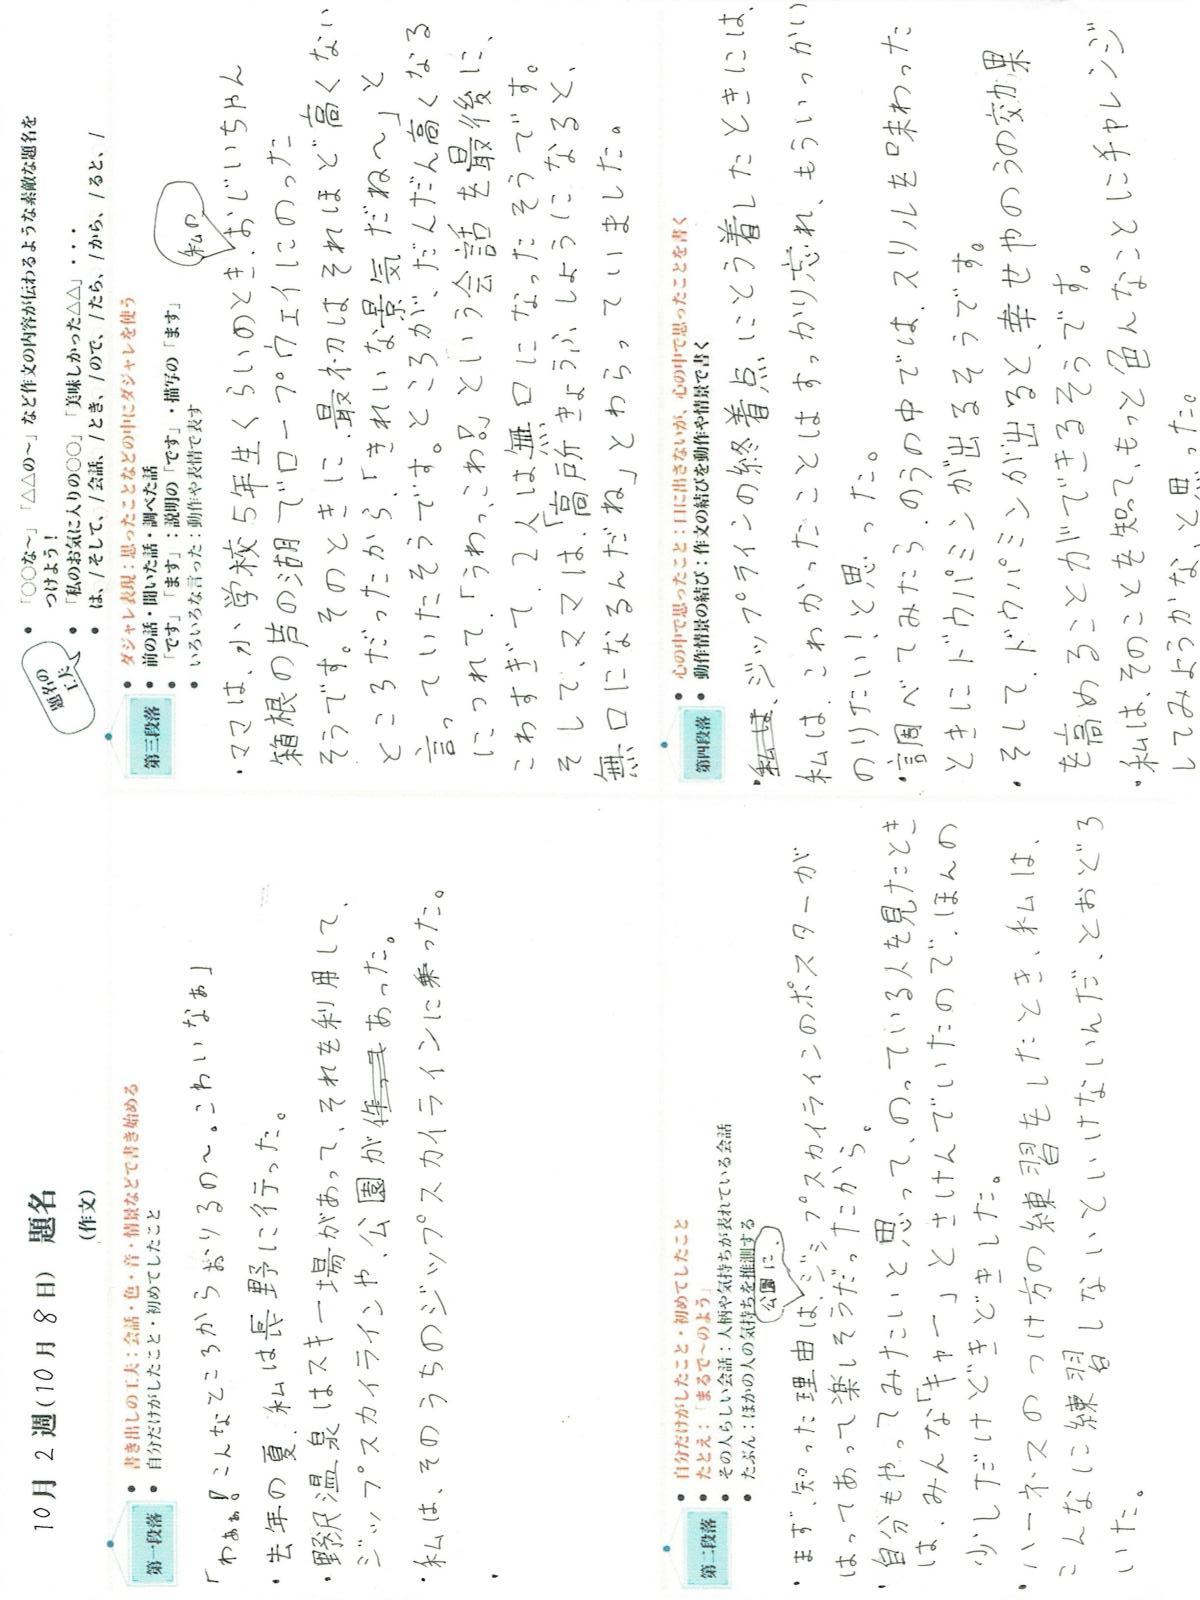 10月 2 週(10 月 8 日) 題名
(作文)
題名の
工夫
• 「○○な～」「△△の～」など作文の内容が伝わるような素敵な題名を
つけよう！
• 「私のお気に入りの○○」「美味しかった△△」・・・
• は、/そして、/会話、/とき、/ので、/たら、/から、/ると、/
第一段落
• 書き出しの工夫：会話・色・音・情景などで書き始める
• 自分だけがしたこと・初めてしたこと
「わぁぁ!こんなところからおりるの～。こわいなぁ」
・去年の夏、私は長野に行った。
・野沢温泉はスキー場があって、それを利用して、
ジップスカイラインや、公園があった。
・私は、そのうちのジップスカイラインに乗った。
第二段落
• 自分だけがしたこと・初めてしたこと
• たとえ：「まるで～のよう」
• その人らしい会話：人柄や気持ちが表れている会話
• たぶん：ほかの人の気持ちを推測する
公園に、
・まず、知った理由は、ジップスカイラインのポスターが
はってあって楽しそうだったから。
・自分もやってみたいと思って、のっている人を見たとき
は、みんな「キャー」とさけんでいたので、ほんの
少しだけどきどきした。
・ハーネスのつけ方の練習をしたとき、私は、
こんなに練習しないといけないんだ、とおどろ
いた。
第三段落
• ダジャレ表現：思ったことなどの中にダジャレを使う
• 前の話・聞いた話・調べた話
• 「です」「ます」：説明の「です」・描写の「ます」
• いろいろな言った：動作や表情で表す
私の
・ママは、小学校5年生くらいのとき、おじいちゃん
箱根の芦の湖でロープウェイにのった
そうです。そのときに、最初はそれほど高くない
ところだったから、「きれいな景気だね～」と
言っていたそうです。ところが、だんだん高くなる
につれて、「うわっ、こわ!」という会話を最後に、
こわすぎて、2人は無口になったそうです。
そして、ママは、「高所きょうふしょうになると、
無口になるんだね」とわらっていました。
第四段落
• 心の中で思ったこと：口に出さないが、心の中で思ったことを書く
• 動作情景の結び：作文の結びを動作や情景で書く
・私は、ジップラインの終着点にとう着したときには、
私は、こわかったことはすっかり忘れ、もういっかい
のりたい！と思った。
・調べてみたら、のうの中では、スリルを味わった
ときにドウパミンが出るそうです。
・そして、ドウパミンが出ると、幸せやのうの効果
を高めることができるそうです。
・私は、そのことを知って、もっと色んなことにチャレンジ
してみようかな、と思った。